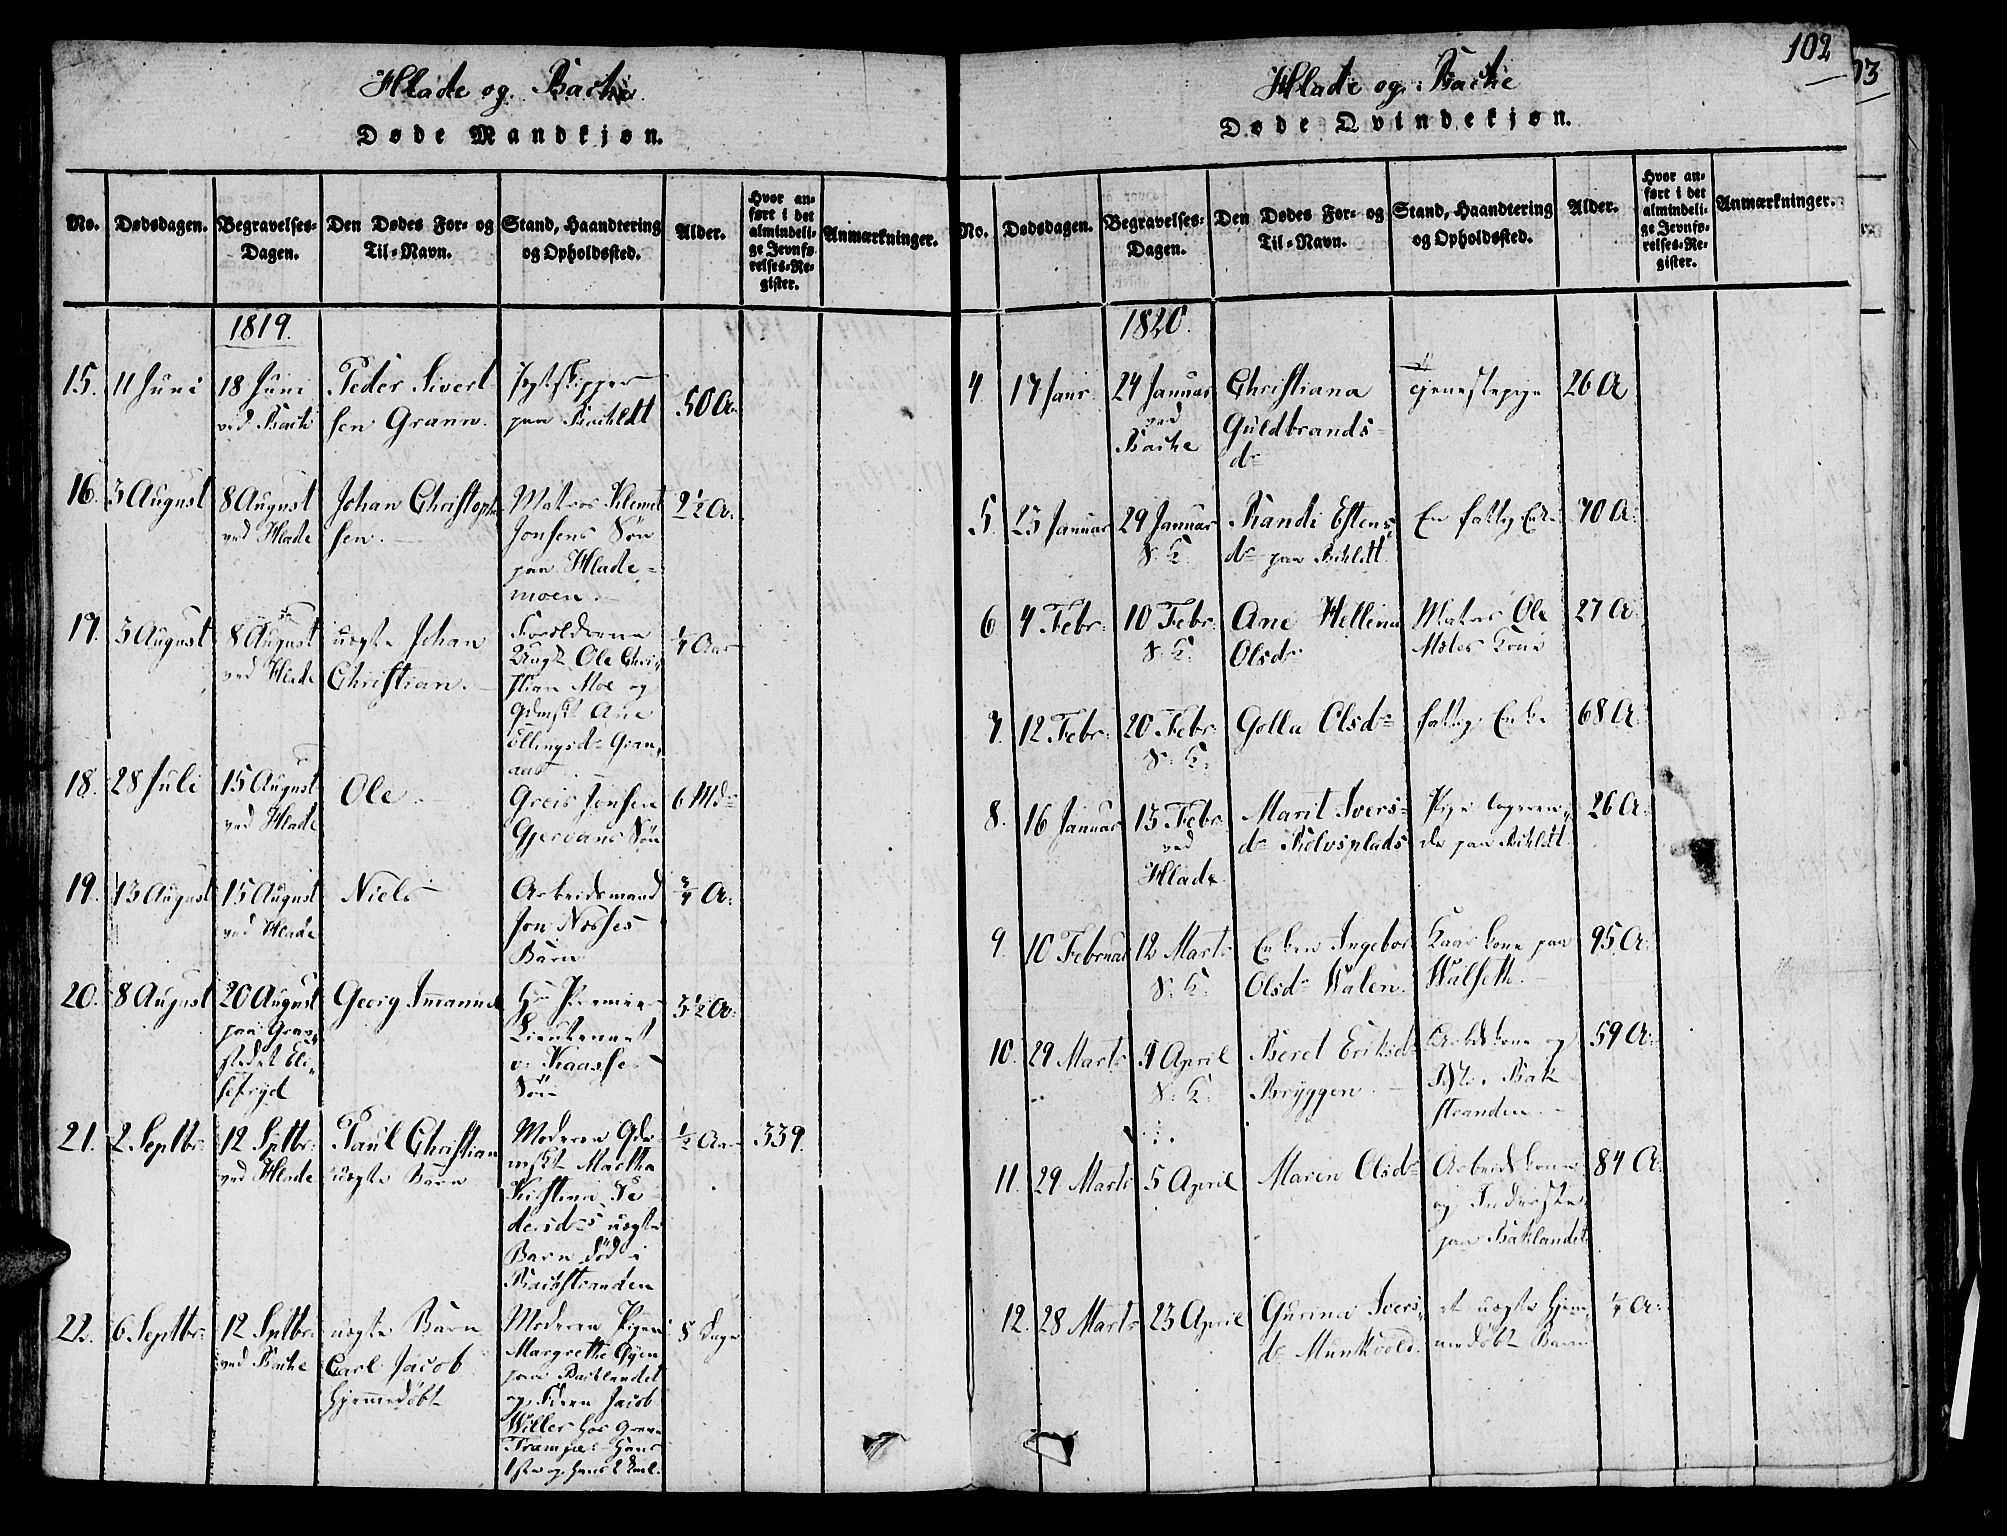 Hlade og Bache
Døde Mandkjøn.
No.
Dødsdagen.
Begravelses-
Dagen.
Den Dødes For- og
Til-Navn.
Stand, Haandtering
og Opholdssted.
Alder.
Hvor an-
ført i det
almindeli-
ge Jevnfø-
relses-Re-
gister.
Anmærkninger.
1819.
15. 11 Juni
18 Juni
ved Bache
Peder Sivert
sen Grann.
Jegtskipper
paa Baklett
50 A.
16. 3 August
8 August
ved Hlade
Johan Christoph
sen.
Matros Klemet
Jonsens Søn
paa Hlade-
moen.
2½ A:
17. 3 August
8 August
ved Hlade
uegte Johan
Christian.
Forældrene
Ungk. Ole Chri-
stian Moe og
Ane
Ellingsd. Gran-
aas
¼ Aar
18. 28 Juli
15 August
ved Hlade
Ole.
Greis Jonsen
Gjervans Søn
6 Md:
19. 13 August
15 August
ved Hlade
Niels
Arbeidsmand
Jon Næsses
Barn
¾ A:
20. 8 August
20 August
paa Grav-
stedet Eli-
sefryd
Georg Immanuel
Hr Premier
Lieutenant
v. Kaasse
Søn
3½ A:
21. 2 Septbr:
12 Sptbr:
ved Hlade
Paul Christian
uegte Barn
Moderen
Martha
Kirstina Pe-
dersd:s uegte
Barn død i
Backstranden
½ Aar
339.
22. 6 Septbr:
12 Sptbr:
ved Bache
uegte Barn
Carl Jacob
hjemmedøbt
Moderen Pigen
Margrethe Øyen
paa Baklandet
og Faderen Jacob
Willer hos
Trampe:
8 Dage
102
Hlade og Bache
Døde Qvindekjøn.
No.
Dødsdagen.
Begravelses-
Dagen.
Den Dødes For- og
Til-Navn.
Stand, Haandtering
og Opholdssted.
Alder.
Hvor an-
ført i det
almindeli-
ge Jevnfø-
relses-Re-
gister.
Anmærkninger.
1820.
4. 17 Janr
24 Januar
ved
Bache
Christiana
Guldbrands
dr
Tjenestepige
26 A
5. 23 Januar
29 Januar
S. K.
Randi Estens
dr paa Baklett
En fattig Enke
70 A:
6 4 Febr:
10 Febr:
S. K.
Ane Hellena
Olsdr
Matros Ole
Kone
27 A:
7. 12 Febr:
20 Febr:
S. K.
Golla Olsdr
fattig Enke
68 A:
8. 16 Januar
13 Febr:
ved
Hlade.
Marit Ivers-
dr Rolvsplads
Pige logeren-
de paa Baklett
26 A:
9. 10 Februar
12 Marts
S. K.
Enken Ingebor
Olsdr Walen.
Kaarkone paa
Walseth.
95 A:
10. 29 Marts
9 April
S. K.
Beret Eriksdr
Bryggen.
Arbdskone og
Bak-
stranden.
59 A:
11. 29 Marts
5 April
Maren Olsdr
Arbeidskone
og Inderste
paa Baklandet
84 A:
12. 28 Marts
23 April
Gurina Ivers-
dr Munkvold.
et uegte hjem-
medøbt Barn
¼ A: